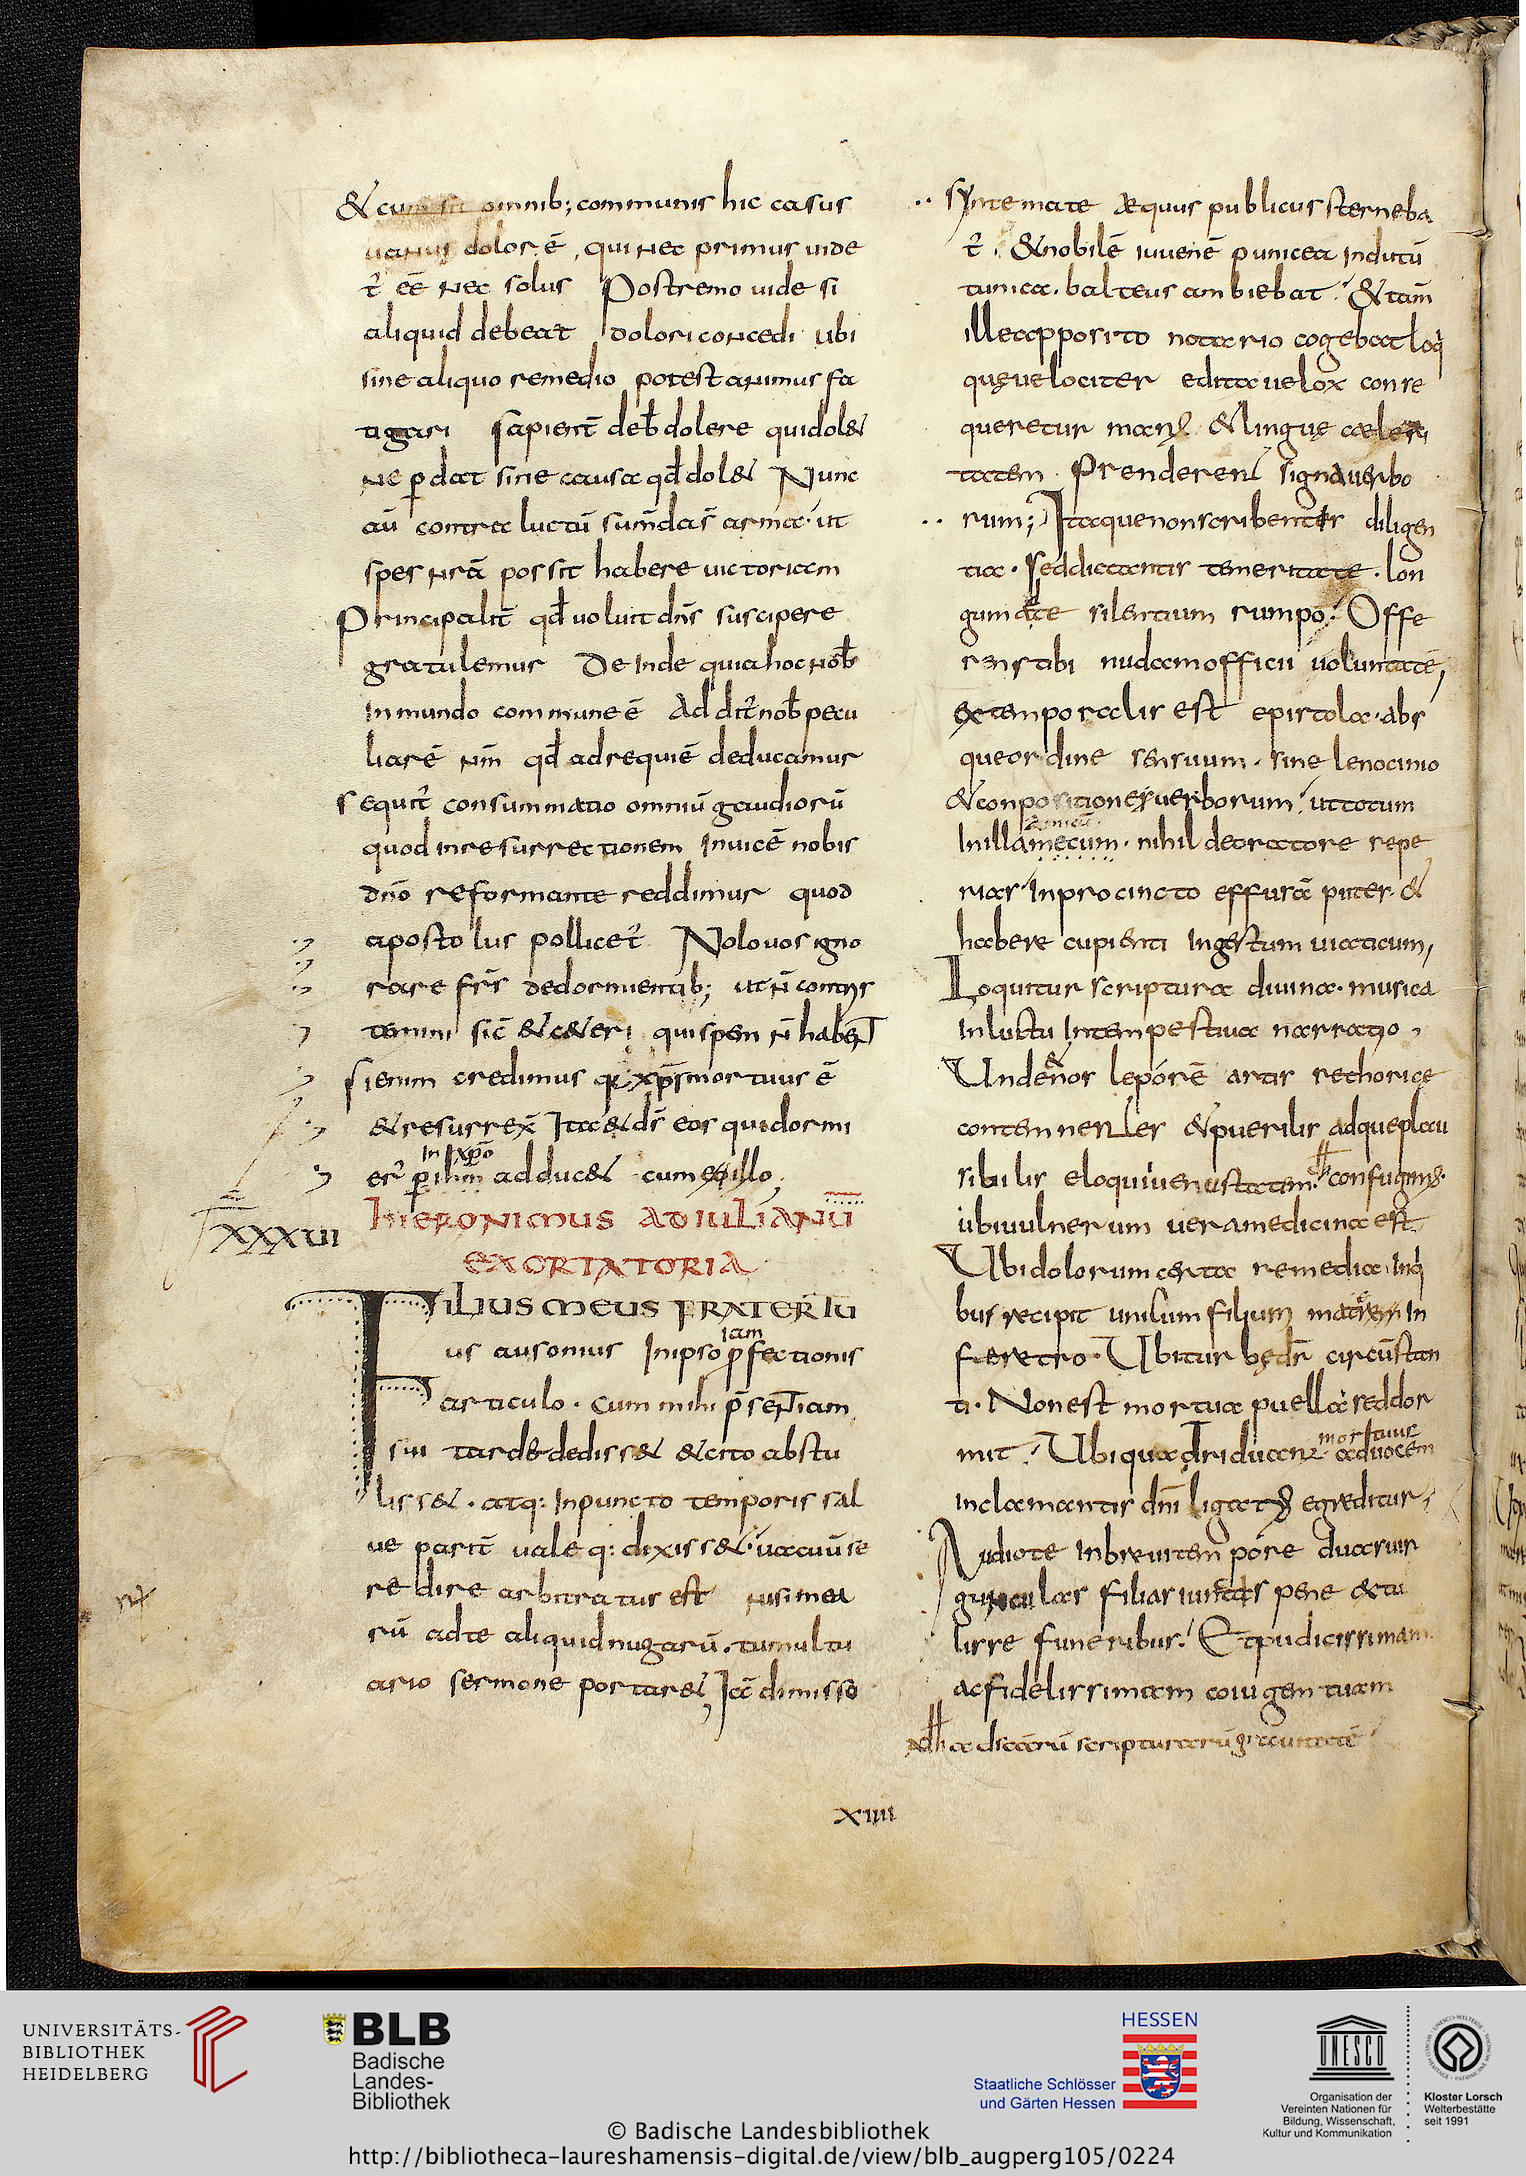 & cum sit omnib; communis hic casus
uanus dolor ē, qui nec primus uide
t̄ eē nec solus Postremo uide si
aliquid debeat dolori concedi ubi
sine aliquo remedio potest animus fa
tigari sapient̄ deb̄ dolere qui dol&
ne p̲dat sine causa qd̄ dol& Nunc
aū contra luctū sumdas̄ arma· ut
spes nr̄ā possit habere uictoriam
Principalit̄ qd̄ uoluit dn̄s suscipere
gratulemur De inde quia hoc nob̄
in mundo commune ē Addit̄ nob̄ pecu
liarē nm̄ qd̄ ad requiē deducamur
sequit̄ consummatio omniū gaudiorū
quod in resurrectionem inuicē nobis
dn̄o reformante reddimur quod
apostolus pollicet̄ Nolo uos igno
rare fr̄s de dormientib; ut n̄ contrys
temini sic̄ & c&eri qui spem n̄ habent
si enim credimus q xp̄s mortuus ē
& resurrex̄ Ita & d̄s eos qui dormi
in xpō
er̄ p̲ ihm̄ adduc& cum illo;
XXXVII
HIERONIMUS AD IULIANŪ
EXORTATORIA
FILIUS MEUS FRATER TU
iam
us ausonius In ipso p̲fectionis
articulo· cum mihi p̄sentiam
sui tarde dediss& & cito abstu
liss&· atq: in puncto temporis sal
ue parit̄ uale q: dixiss&· uacuū se
redire arbitratus est nisi mea
rū ad te aliquid nugarū· tumultu
ario sermone portar&, Iā dimisso
syntemate æquus publicus sterneba
t̄· & nobilē iuuenē punicea indutū
tunica· balteus ambiebat· & tam̄
ille apposito notario cogebat loq
quę uelociter edita uelox conse
queretur man; & linguę caeleri
tatem· Prenderent signa uerbo
rum; Itaque non scribentis diligen
tia· sed dictantis temeritate· lon
gum ad te silentium rumpo· Offe
rens tibi nudam officii uoluntatē,
extemporalis est epistola· abs
que ordine sensuum· sine lenocinio
& conpositione uerborum· ut totum
amicū
In illa mecum· nihil de oratore repe
rias· In procinctu effusā puter· &
habere cupienti ingestum uiaticum,
Loquitur scriptura diuina· musica
in luctu intempestiua narratio,
Unde & nos leporē artis rethorice
contemnentes & puerilis adque plau
sibilis eloquii uenustatem· confugim;·
ubi uulnerum uera medicina est
Ubi dolorum certa remedia· In q
bus recipit unicum filium mater in
feretro· Ubi turbę dr̄ circūstan
ti· Non est mortua puella sed dor
mortuus
mit· Ubi quadriduan; ad uocem
inclamantis dn̄i ligat; egreditur,
Audio te in breui tempore duas uir
gunculas filias iunctis pene extu
lisse funeribus· Et pudicissimam
ac fidelissimam coiugem tuam
XIIII
UNIVERSITÄTS-
BIBLIOTHEK
HEIDELBERG
BLB
Badische
Landes-
Bibliothek
HESSEN
Staatliche Schlösser
und Gärten Hessen
UNESCO
Organisation der
Vereinten Nationen für
Bildung, Wissenschaft,
Kultur und Kommunikation
Kloster Lorsch
Welterbestätte
seit 1991
© Badische Landesbibliothek
http://bibliotheca-laureshamensis-digital.de/view/blb_augperg105/0224